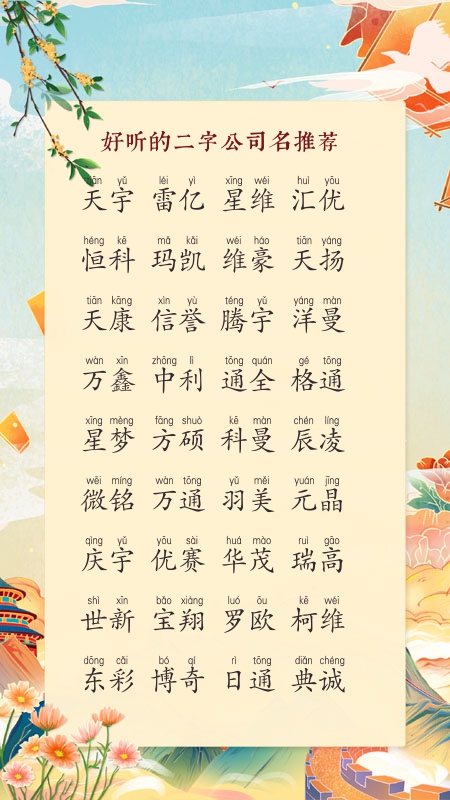 好听的二字公司名推荐
tiān yǔ léi yì xīng wéi huì yōu
天宇 雷亿 星维 汇优
héng kē mǎ kǎi wéi háo tiān yáng
恒科 玛凯 维豪 天扬
tiān kāng xìn yù téng yǔ yáng màn
天康 信誉 腾宇 洋曼
wàn xīn zhōng lì tōng quán gé tōng
万鑫 中利 通全 格通
xīng mèng fāng shuò kē màn chén líng
星梦 方硕 科曼 辰凌
wēi míng wàn tōng yǔ měi yuán jīng
微铭 万通 羽美 元晶
qìng yǔ yōu sài huá mào ruì gāo
庆宇 优赛 华茂 瑞高
shì xīn bǎo xiáng luó ōu kē wéi
世新 宝翔 罗欧 柯维
dōng cǎi bó qí rì tōng diǎn chéng
东彩 博奇 日通 典诚